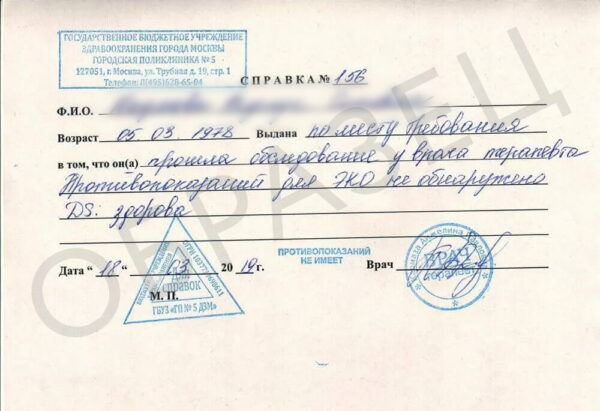 ГОСУДАРСТВЕННОЕ БЮДЖЕТНОЕ УЧРЕЖДЕНИЕ
ЗДРАВООХРАНЕНИЯ ГОРОДА МОСКВЫ
ГОРОДСКАЯ ПОЛИКЛИНИКА № 5
127051, г. Москва, ул. Трубная д. 19, стр. 1
Телефон: 8(495)628-65-04
СПРАВКА № 156
Ф.И.О.
Возраст 05 03 1978 Выдана по месту требования
в том, что он(а) прошла обследование у врача терапевта
Противопоказаний для ЭКО не обнаружено
DS: здорова
ПРОТИВОПОКАЗАНИЙ
НЕ ИМЕЕТ
Дата "18" 03 2019г.
Врач
ВРАЧ
М. П.
ДЛЯ
СПРАВОК
ГБУЗ «ГП № 5 ДЗМ»
ОБРАЗЕЦ